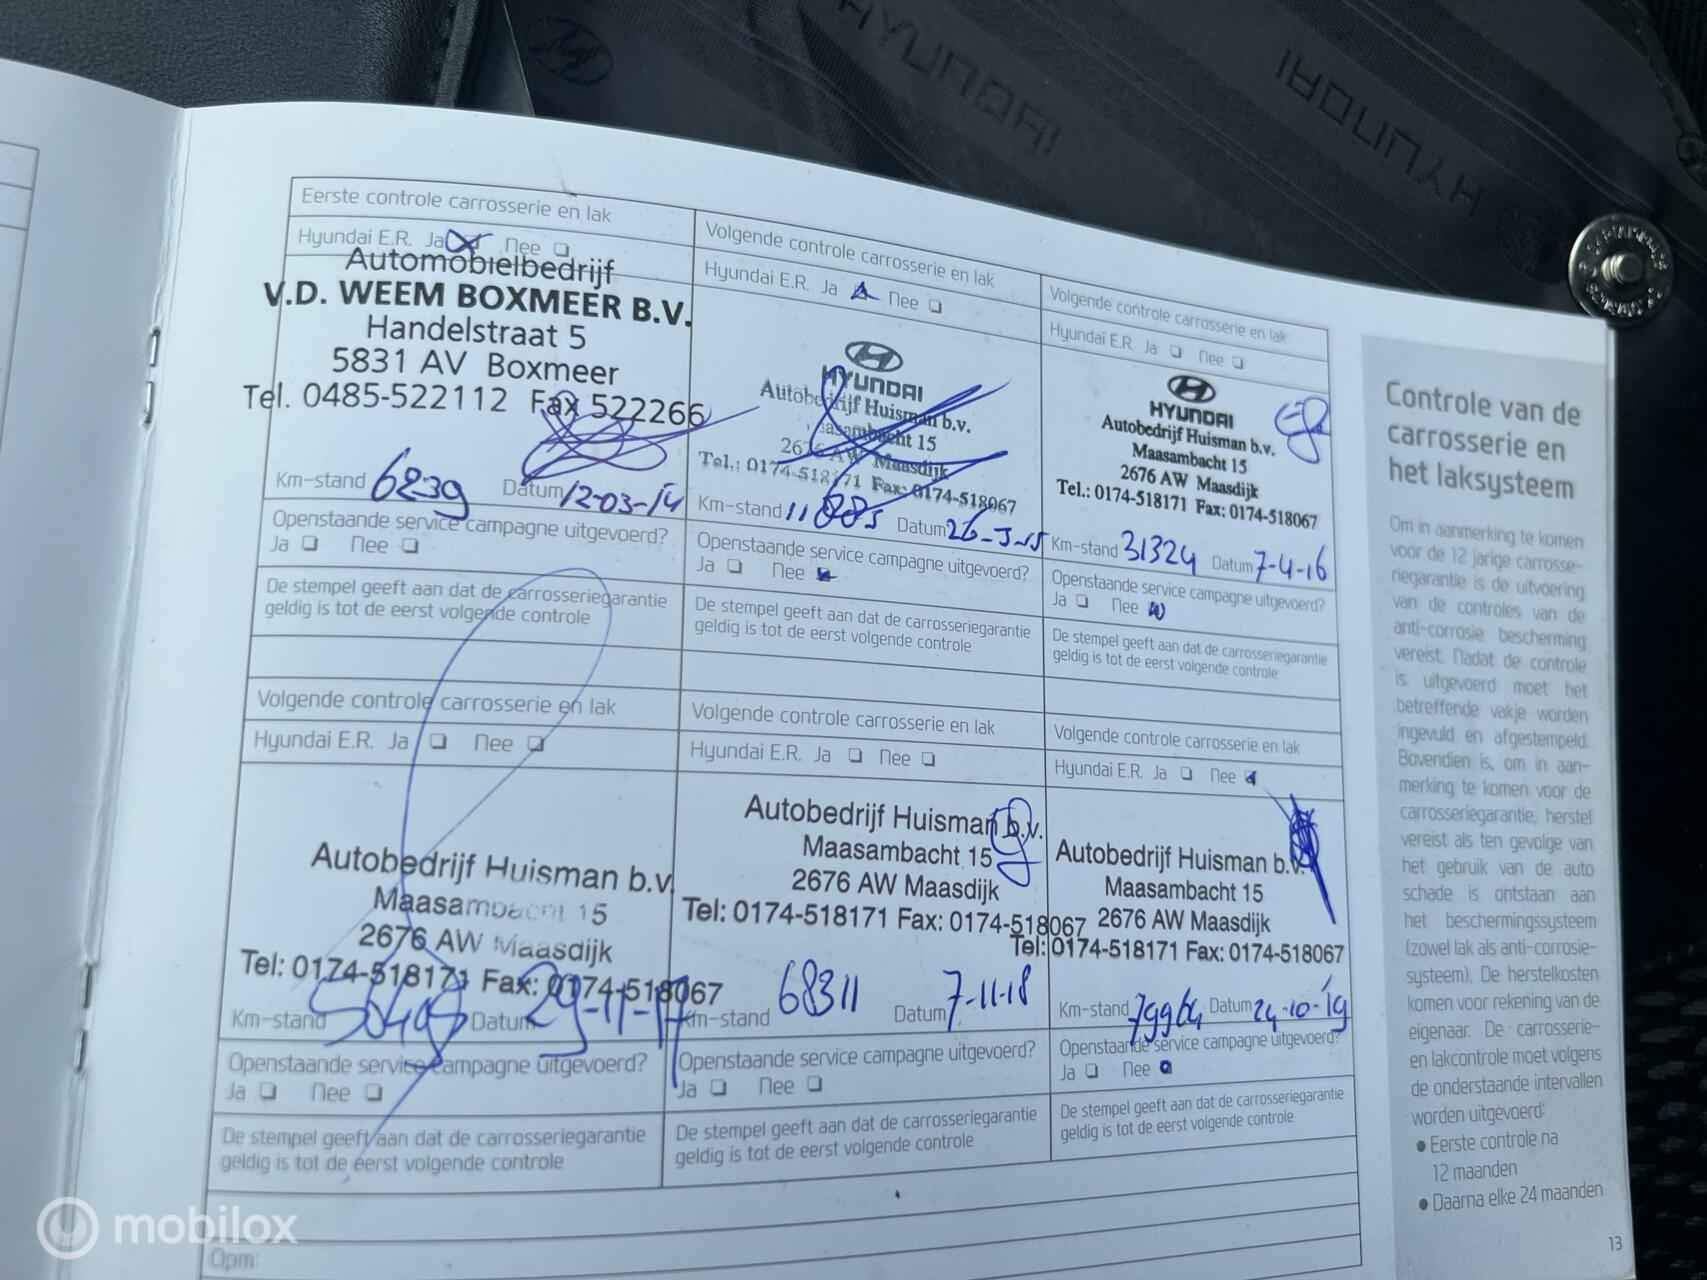 HYUNDAI
HYUNDAI
Eerste controle carrosserie en lak
Hyundai E.R. Ja Nee
Automobielbedrijf
V.D. WEEM BOXMEER B.V.
Handelstraat 5
5831 AV Boxmeer
Tel. 0485-522112 Fax 522266
Km-stand 6239 Datum 12-03-14
Openstaande service campagne uitgevoerd?
Ja Nee
De stempel geeft aan dat de carrosseriegarantie
geldig is tot de eerst volgende controle
Volgende controle carrosserie en lak
Hyundai E.R. Ja Nee
HYUNDAI
Autobedrijf Huisman b.v.
Maasambacht 15
2676 AW Maasdijk
Tel.: 0174-518171 Fax: 0174-518067
Km-stand Datum
Openstaande service campagne uitgevoerd?
Ja Nee
De stempel geeft aan dat de carrosseriegarantie
geldig is tot de eerst volgende controle
Volgende controle carrosserie en lak
Hyundai E.R. Ja Nee
HYUNDAI
Autobedrijf Huisman b.v.
Maasambacht 15
2676 AW Maasdijk
Tel.: 0174-518171 Fax: 0174-518067
Km-stand 31324 Datum 7-4-16
Openstaande service campagne uitgevoerd?
Ja Nee
De stempel geeft aan dat de carrosseriegarantie
geldig is tot de eerst volgende controle
Volgende controle carrosserie en lak
Hyundai E.R. Ja Nee
Autobedrijf Huisman b.v.
Maasambacht 15
2676 AW Maasdijk
Tel: 0174-518171 Fax: 0174-518067
Km-stand Datum 29-11-17
Openstaande service campagne uitgevoerd?
Ja Nee
De stempel geeft aan dat de carrosseriegarantie
geldig is tot de eerst volgende controle
Volgende controle carrosserie en lak
Hyundai E.R. Ja Nee
Autobedrijf Huisman b.v.
Maasambacht 15
2676 AW Maasdijk
Tel: 0174-518171 Fax: 0174-518067
Km-stand 68311 Datum 7-11-18
Openstaande service campagne uitgevoerd?
Ja Nee
De stempel geeft aan dat de carrosseriegarantie
geldig is tot de eerst volgende controle
Volgende controle carrosserie en lak
Hyundai E.R. Ja Nee
Autobedrijf Huisman b.v.
Maasambacht 15
2676 AW Maasdijk
Tel: 0174-518171 Fax: 0174-518067
Km-stand 79964 Datum 24-10-19
Openstaande service campagne uitgevoerd?
Ja Nee
De stempel geeft aan dat de carrosseriegarantie
geldig is tot de eerst volgende controle
Opm:
Controle van de
carrosserie en
het laksysteem
Om in aanmerking te komen
voor de 12 jarige carrosse-
riegarantie is de uitvoering
van de controles van de
anti-corrosie bescherming
vereist. Nadat de controle
is uitgevoerd moet het
betreffende vakje worden
ingevuld en afgestempeld.
Bovendien is, om in aan-
merking te komen voor de
carrosseriegarantie, herstel
vereist als ten gevolge van
het gebruik van de auto
schade is ontstaan aan
het beschermingssysteem
(zowel lak als anti-corrosie-
systeem). De herstelkosten
komen voor rekening van de
eigenaar. De carrosserie-
en lakcontrole moet volgens
de onderstaande intervallen
worden uitgevoerd:
• Eerste controle na
12 maanden
• Daarna elke 24 maanden
13
mobilox